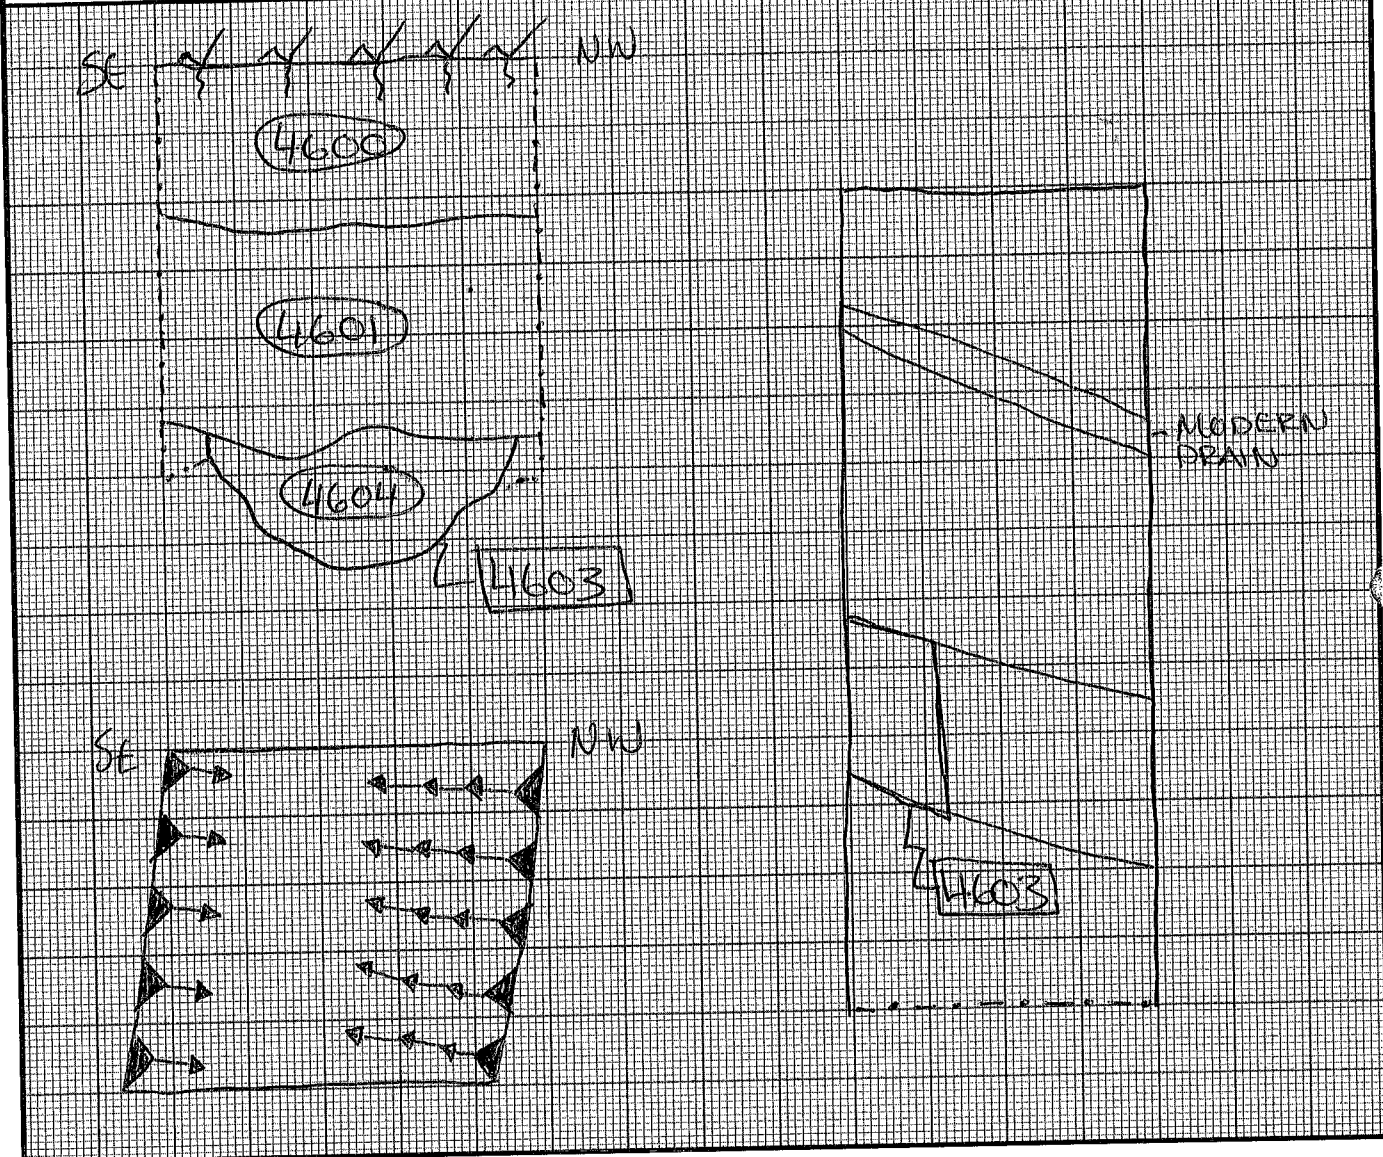 SE NW
4600
4601
4604
4603
MODERN
DRAIN
SE NW
4603